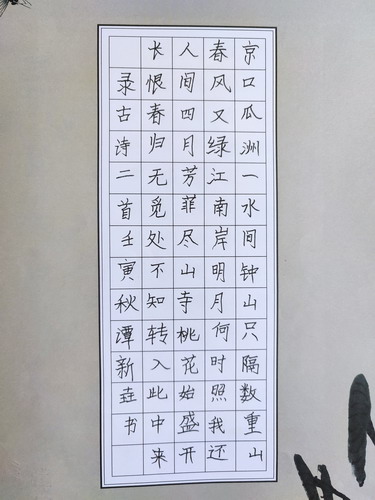 京口瓜洲一水间钟山只隔数重山
春风又绿江南岸明月何时照我还
人间四月芳菲尽山寺桃花始盛开
长恨春归无觅处不知转入此中来
录古诗二首壬寅秋谭新垚书